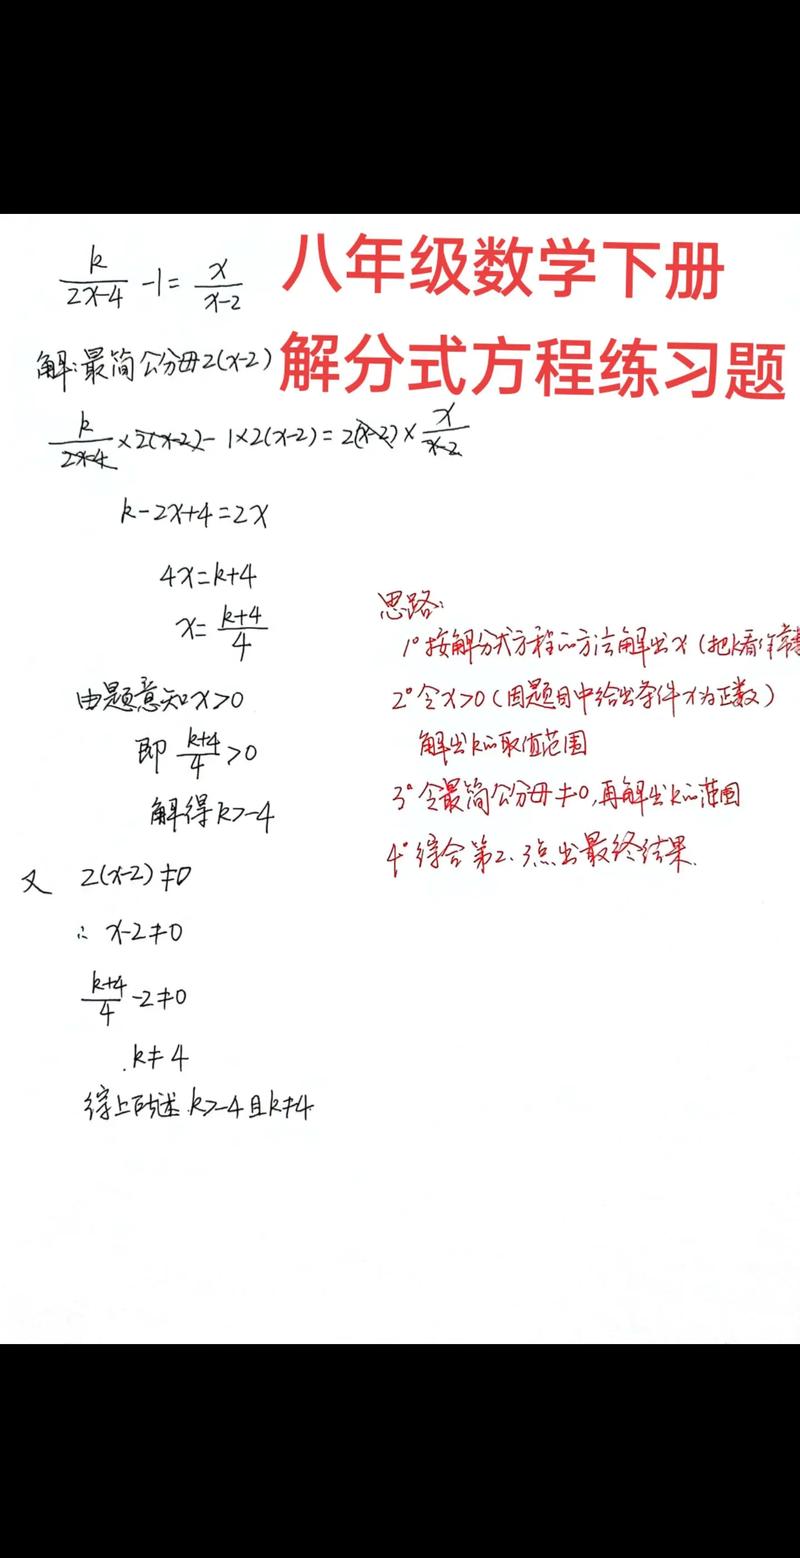 k/(2x-4) -1= x/(x-2)
八年级数学下册
解:最简公分母2(x-2)
解分式方程练习题
k/(2x-4) ×2(x-2)- 1×2(x-2)=2(x-2)× x/(x-2)
k-2x+4=2x
4x=k+4
x= (k+4)/4
由题意知x>0
即 (k+4)/4 >0
解得k>-4
又 2(x-2)≠0
∴ x-2≠0
(k+4)/4 -2≠0
.k≠4
综上所述.k>-4且k≠4
思路:
1°按解分式方程的方法解出x(把k看作常
2°令x>0(因题目中给出条件x为正数)
解出k的取值范围
3°令最简公分母≠0,再解出k的范围
4°综合第2、3点出最终结果.